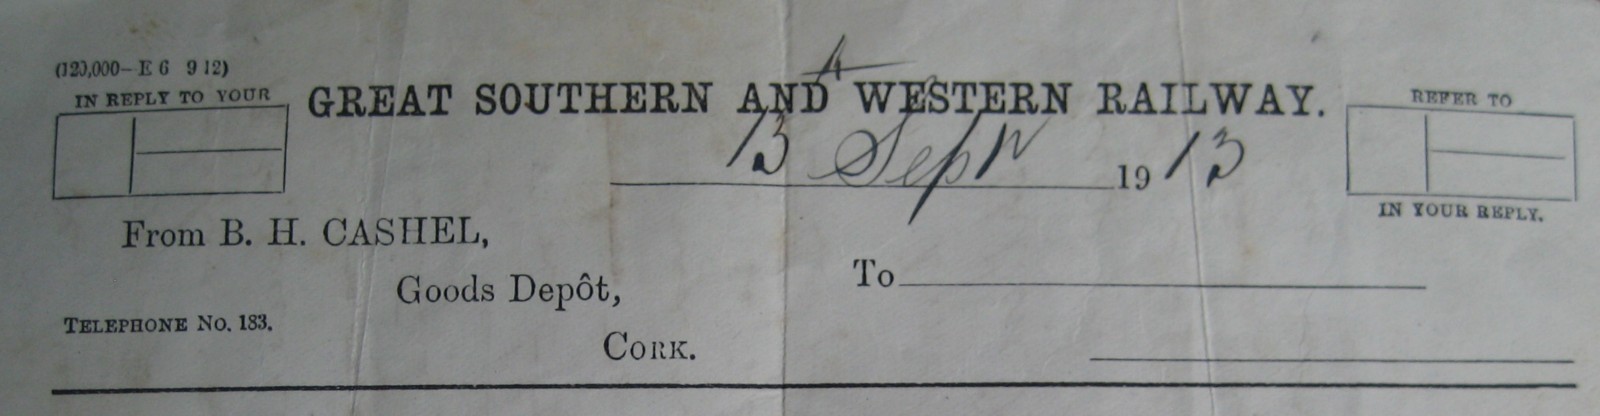 (120,000—E 6 9 12)
IN REPLY TO YOUR
GREAT SOUTHERN AND WESTERN RAILWAY.
REFER TO
13 Sepr 1913
IN YOUR REPLY.
From B. H. CASHEL,
Goods Depôt,
To
TELEPHONE No. 183.
CORK.